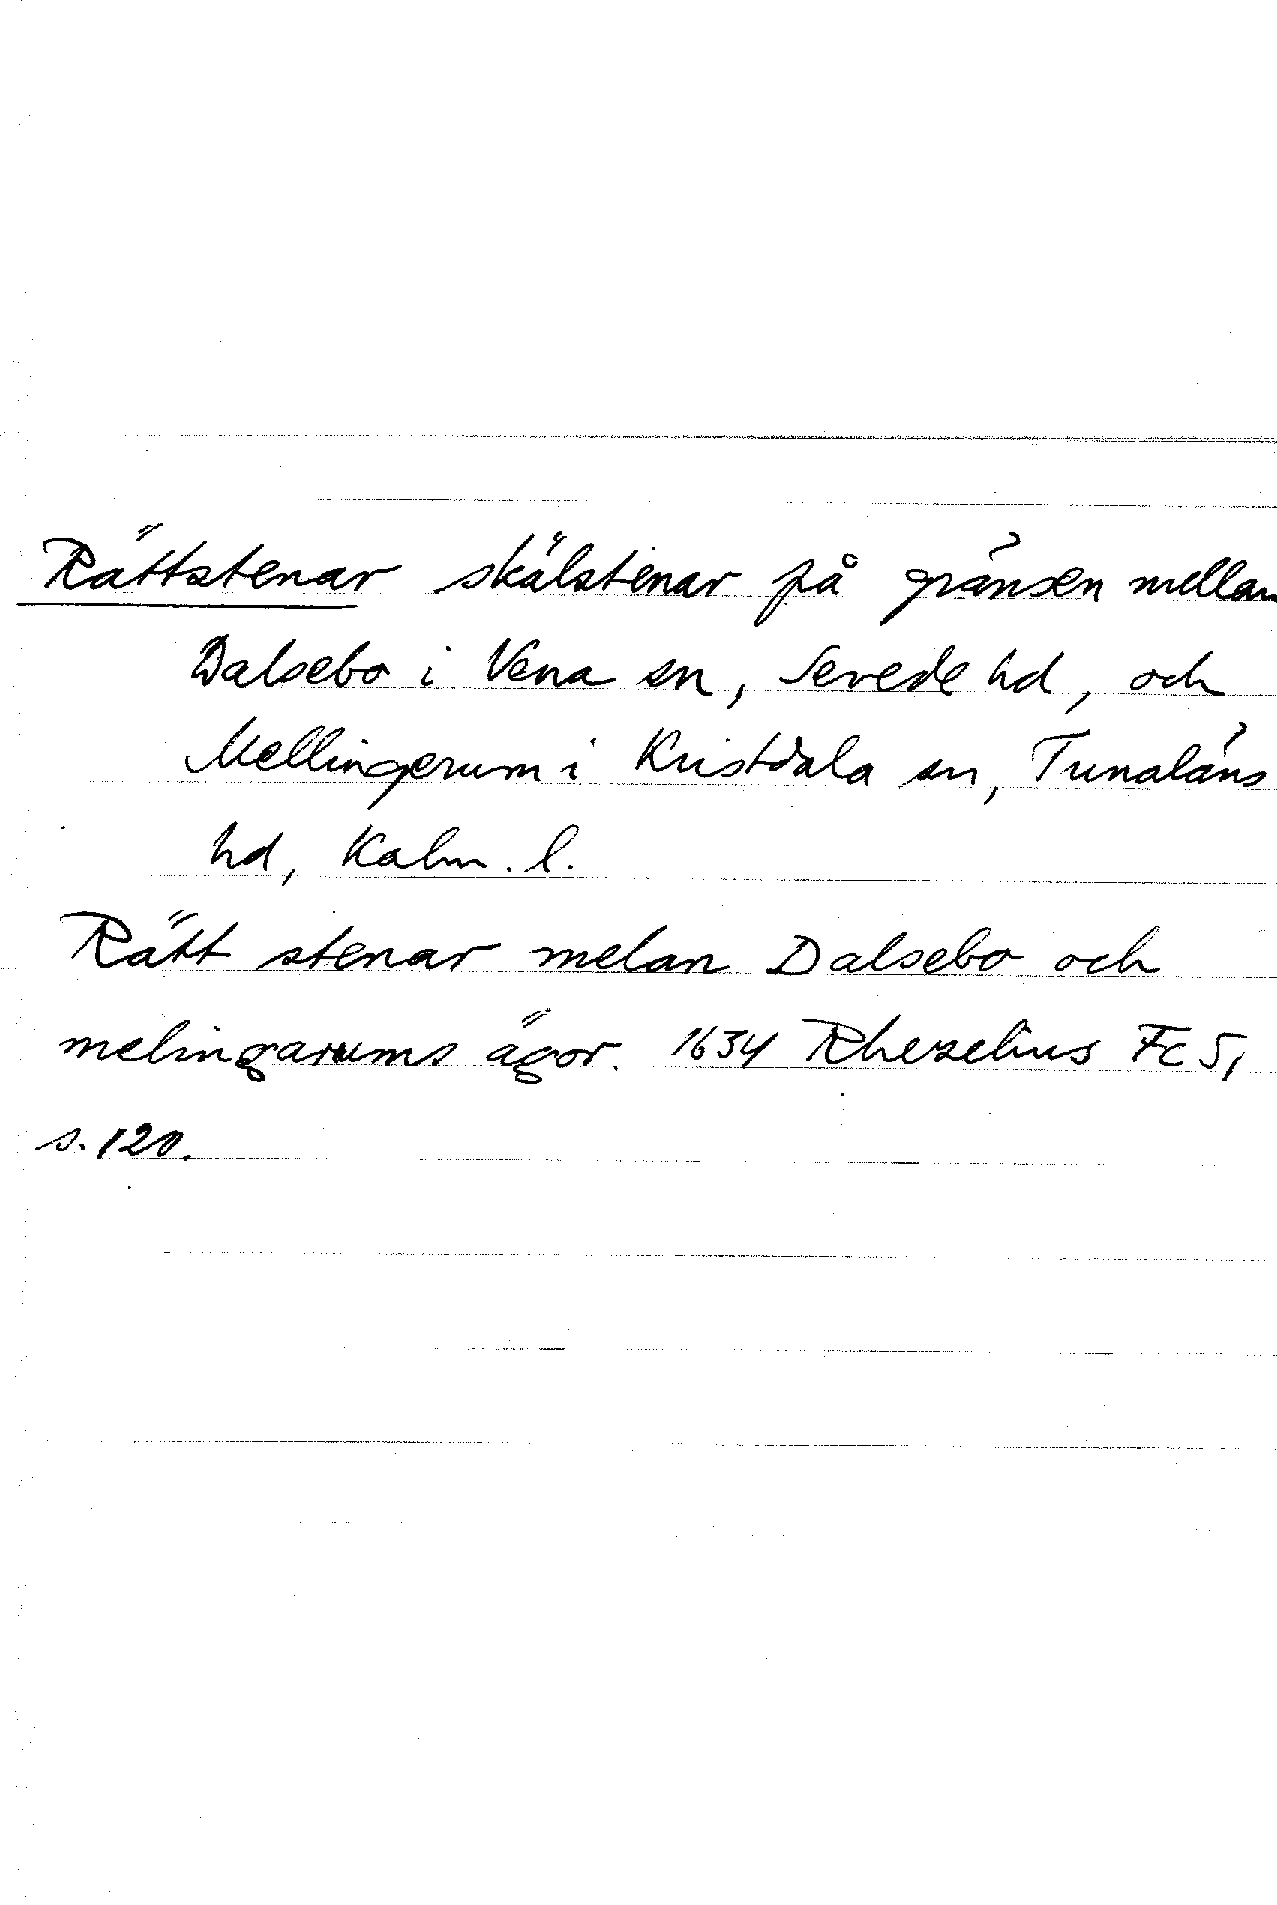 Rättstenar skälstenar på gränsen mellan
Dalsebo i Vena sn, Sevede hd, och
Mellingerum i Kristdala sn, Tunaläns
hd, Kalm. l.
Rätt stenar melan Dalsebo och
melingarums ägor. 1634 Rhezelius Fc 5,
s. 120.